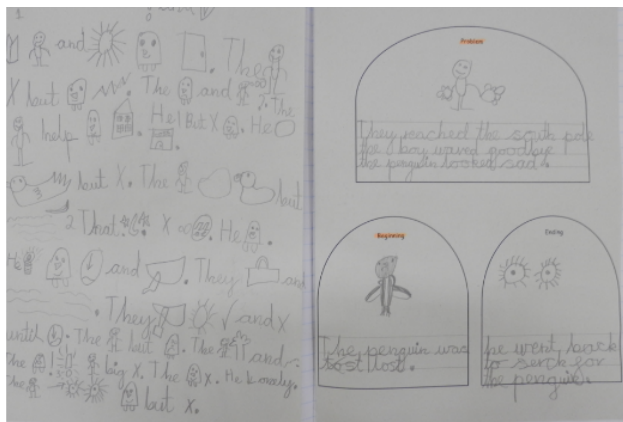 1
and . The
X but . The and ?. The
help . He ! But X . He
but X. The but
2 That . X . He .
He and . They and
. They and X
until . The but . The and
The ! big X. The X. He lonely.
The but X.
Problem
They reached the south pole
the boy waved goodbye
the penguin looked sad.
Beginning
The penguin was
lost.
Ending
he went back
to serch for
the penguin.